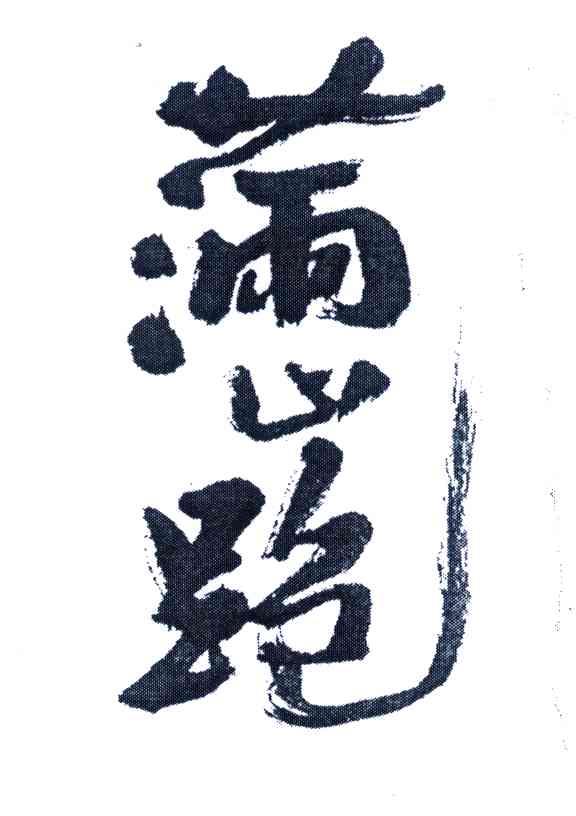 满山跑